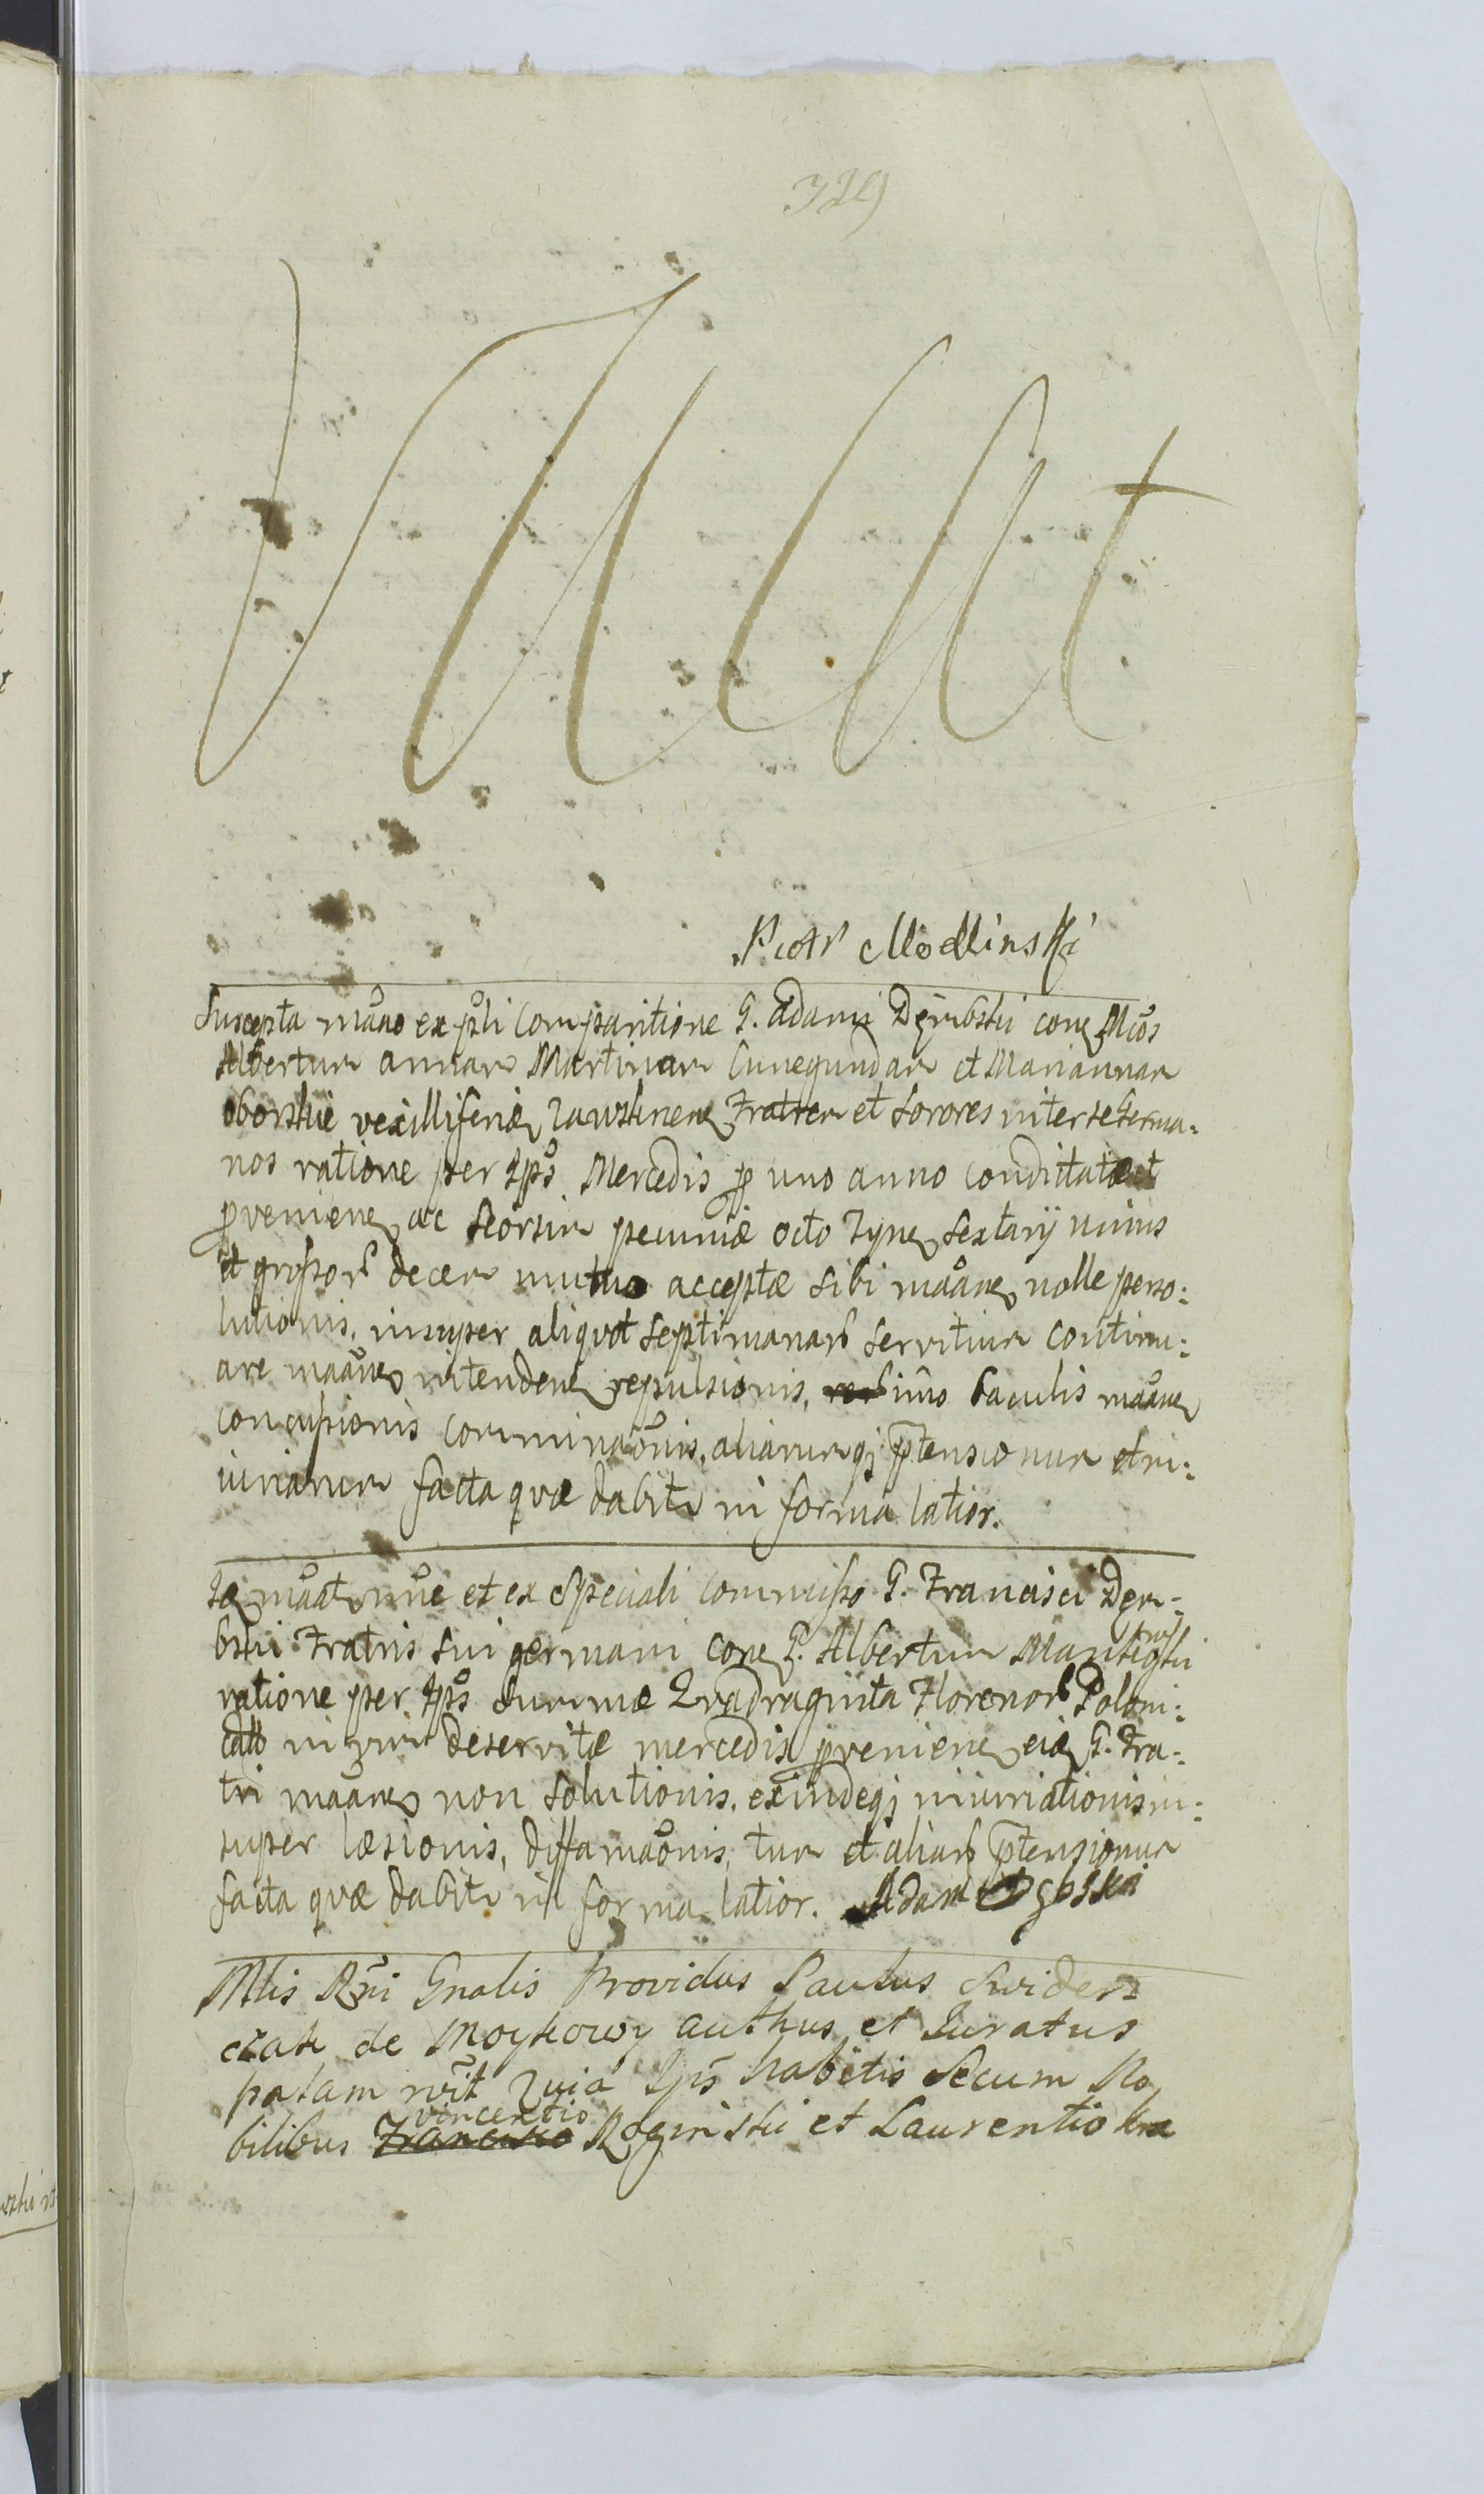 329
Vacat
Piotr Modlinski
Suscepta mãño ex psti comparitione G. Adami Dęmbski cone Mcos
Albertum annam Martinam Cunegundam et Mariannam
oborskie vexilliferię rawskiene Fratrem et Sorores inter se Germa:
nos ratione per Ips Mercedis p uno anno condictatæ et
pveniene ac seorsim pecuniæ octo Tynf. sextarÿ unius
et grossor decem mutuo acceptæ sibi maane nolle perso:
lutionis, insuper aliquot septimanar servitium continu:
are maane intendene repulsionis, imo baculis maane
concussionis comminaonis, aliarumqj ptensionum et in:
iuriarum facta quæ dabitr in forma latior.
Id maat nne et ex speciali commisso G. Francisci Dęm:
bski Fratris sui germani cone G. Albertum
ratione per Ips summæ Quadraginta Florenor Poloni:
calium in vim deservitæ mercedis pveniene eid G. Fra:
tri maane non solutionis, exindeqj iniuriationis in:
super læsionis, diffamaonis, tum et aliar ptensionum
facta quæ dabitr in forma latior. Adam
Mlis Rgni Gnalis Providus Paulus Swider
czak de Moykowy authus et Juratus
palam rvit Quia Ips habitis secum No
bilibus Francisco vincentio Roginski et Laurentio